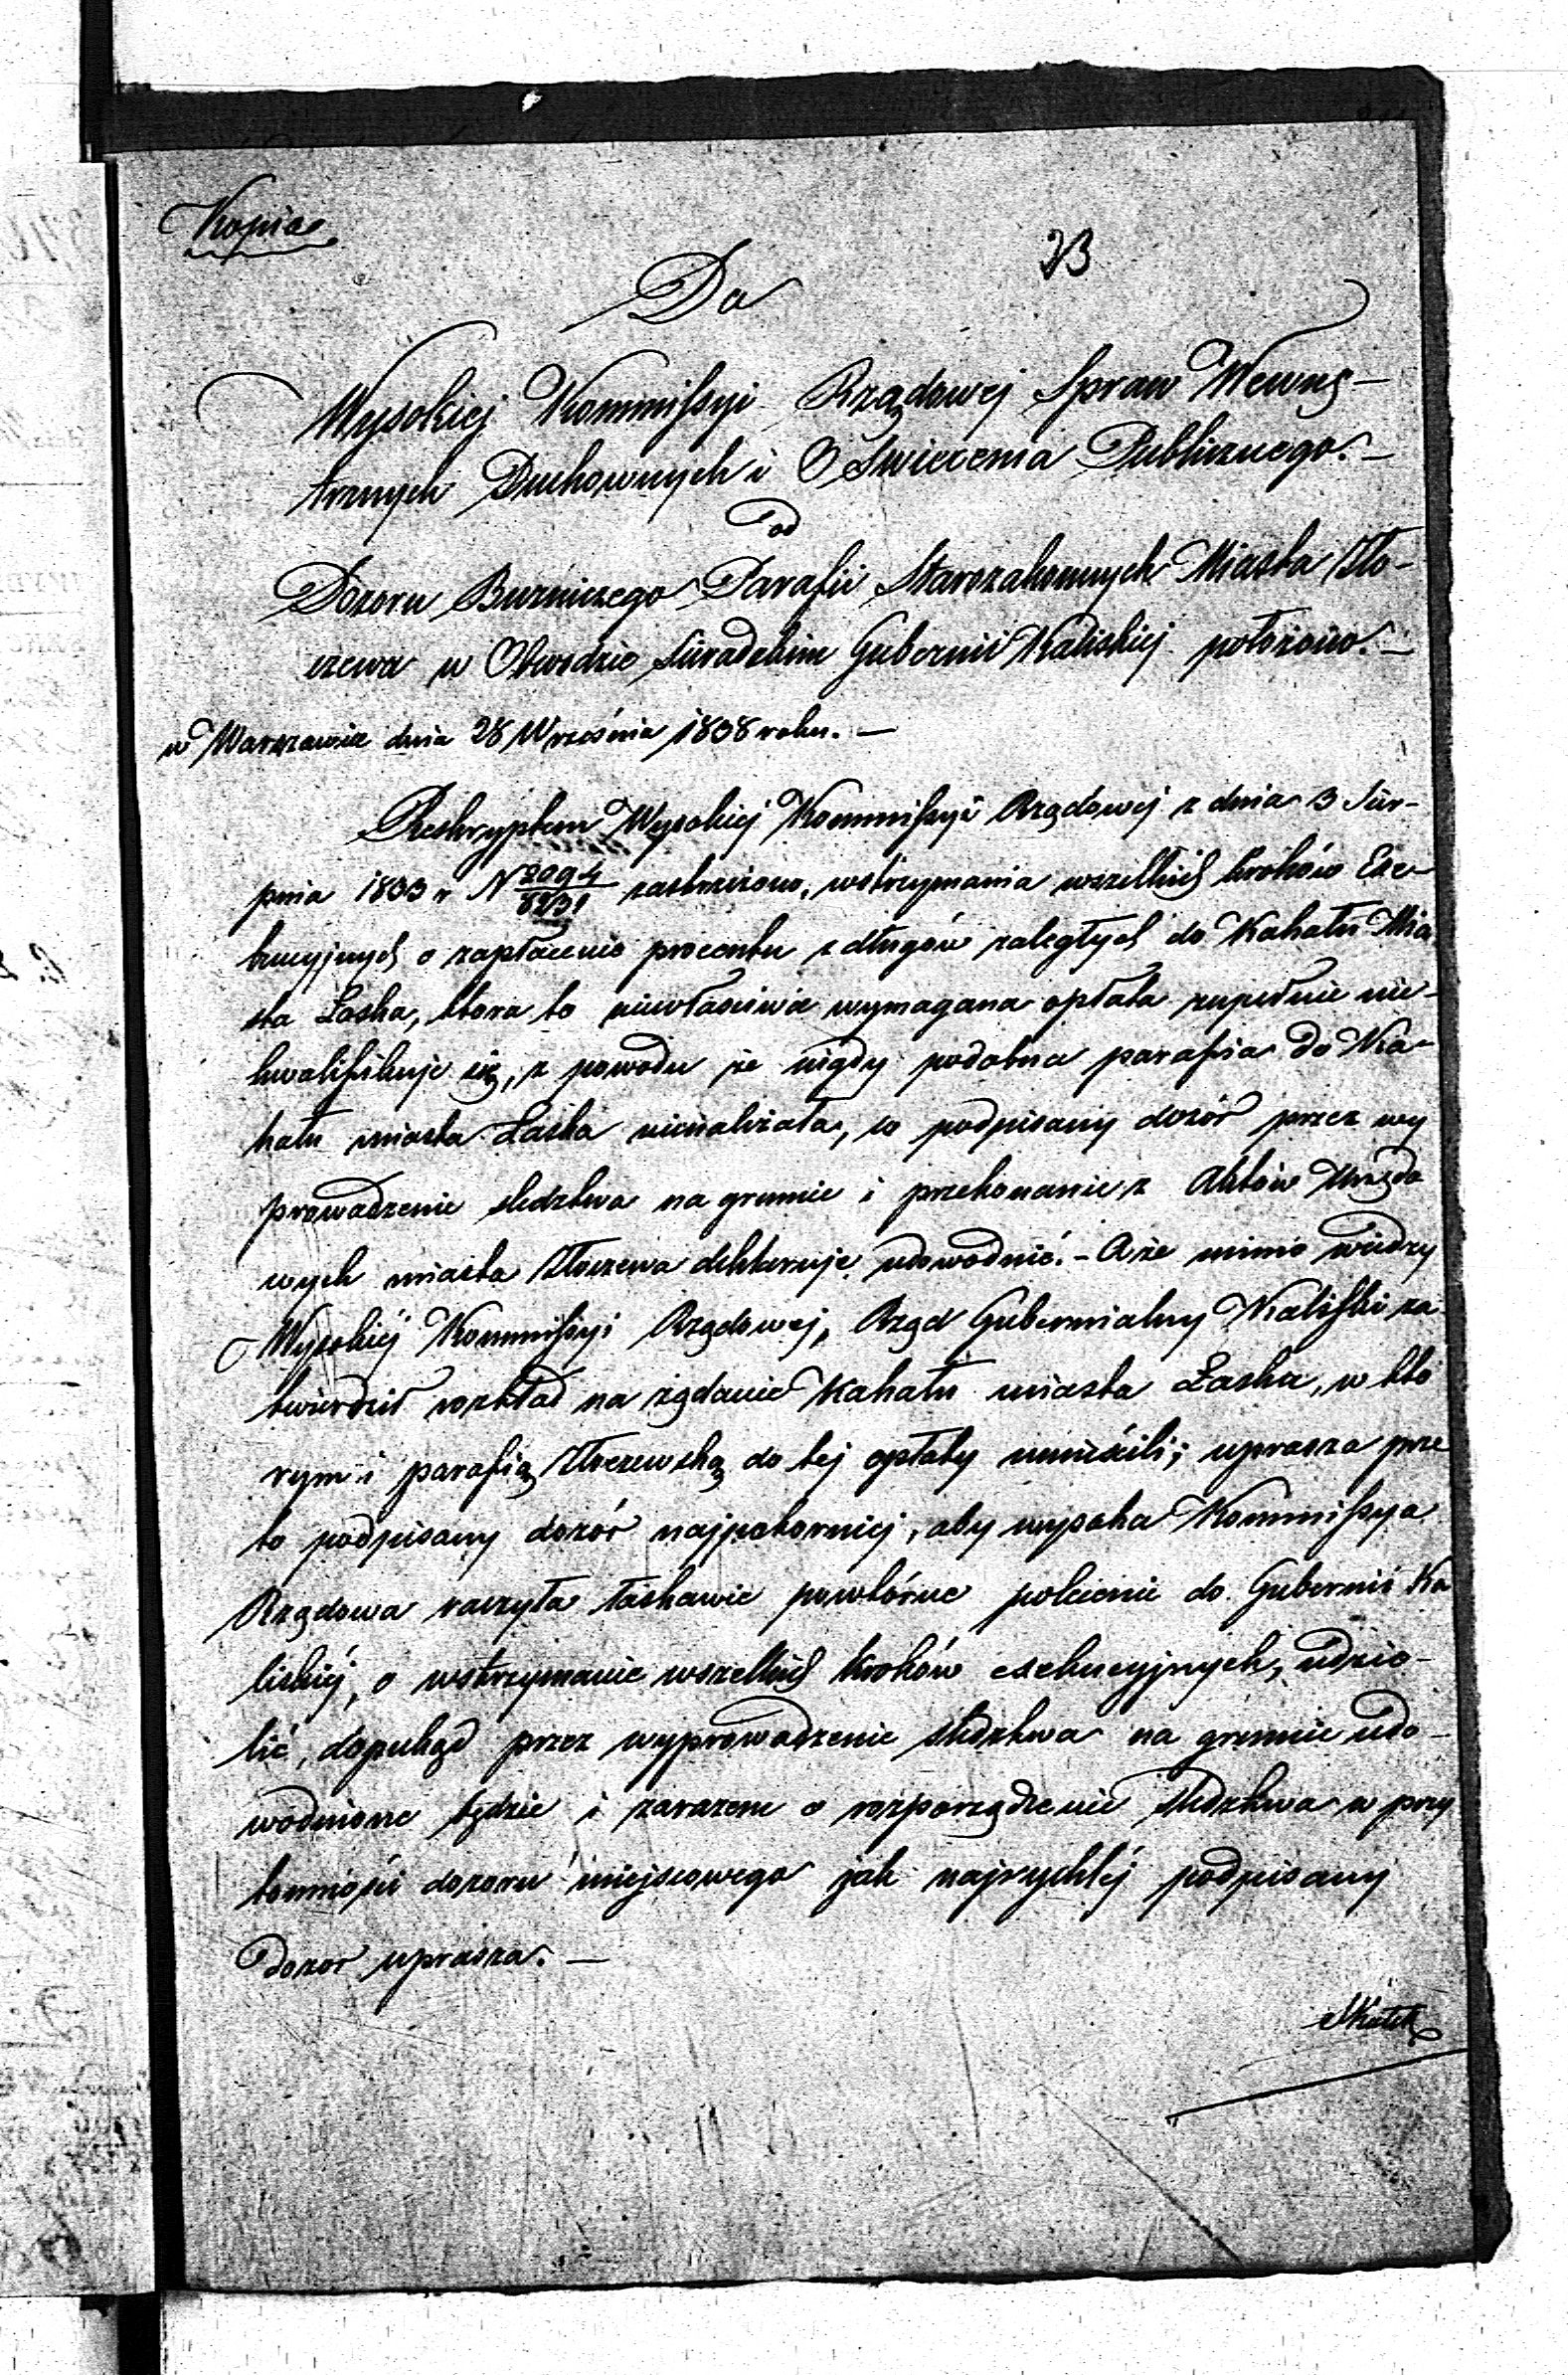 Kopia
23
Do
Wysokiej Kommissyi Rządowej Spraw Wewnę-
trznych Duchownych i Oświecenia Publicznego.-
od
Dozoru Bużniczego Parafii Starozakonnych Miasta Zło-
czewa w Obwodzie Siradzkim Gubernii Kaliskiej położono.-
w Warszawie dnia 28 Września 1838 roku.-
Reskryptem Wysokiej Kommissyi Rządowej z dnia 3 Sier-
pnia 1833 r N 2094/6231 zastrzeżono, wstrzymania wszelkich kroków Exe-
kucyjnych o zapłacenie procentu z długów zaległych do Kahału Mia
sta Łaska, ktora to niewłaściwie wymagana opłata zupełnie nie-
kwalifikuje się, z powodu że nigdy podobna parafia do Ka-
hału miasta Łaska nienależała, co podpisany dozór przez wy
prowadzenie sledztwa na gruncie i przekonanie z Aktów Urzędo
wych miasta Złoczewa deklaruje udowodnić.- A że mimo wiedzy
Wysokiéj Kommissyi Rządowej, Rząd Gubernialny Kaliski za-
twierdził rozkład na rządanie Kahału miasta Łaska, w któ
rym i parafią Złoczewską do tej opłaty umieścili; uprasza prze
to podpisany dozór najpokorniej, aby wysoka Kommissya
Rządowa raczyła łaskawie powtórne polecenie do Gubernii Ka
liskiéj, o wstrzymanie wszelkich kroków exekucyjnych, udzie-
lić, dopukąd przez wyprowadzenie sledztwa na gruncie udo-
wodnione będzie i zarazem o rozporządzenie sledztwa w przy
tomności dozoru miejscowego jak najrychléj podpisany
Dozor uprasza.-